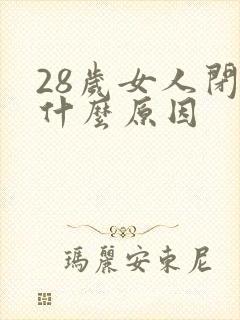 28歲女人閉
什麼原因
瑪麗安東尼